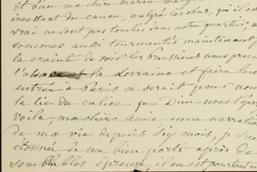 Et bien ma chère Maria malgré
incessant du canon, malgré les obus, qui
vrai ne sont pas tombés dans notre quartier,
sommes aussi tourmentés maintenant
la crainte de voir les Prussiens nous
la Lorraine et faire leur
entrée à Paris ce serait pour nous
la lie du calice, que Dieu nous
Voilà, ma chère amie, une narration
de ma vie depuis six mois, je suis
étonnée de m'être bien porté après de
semblables épreuves, il en est pourtant